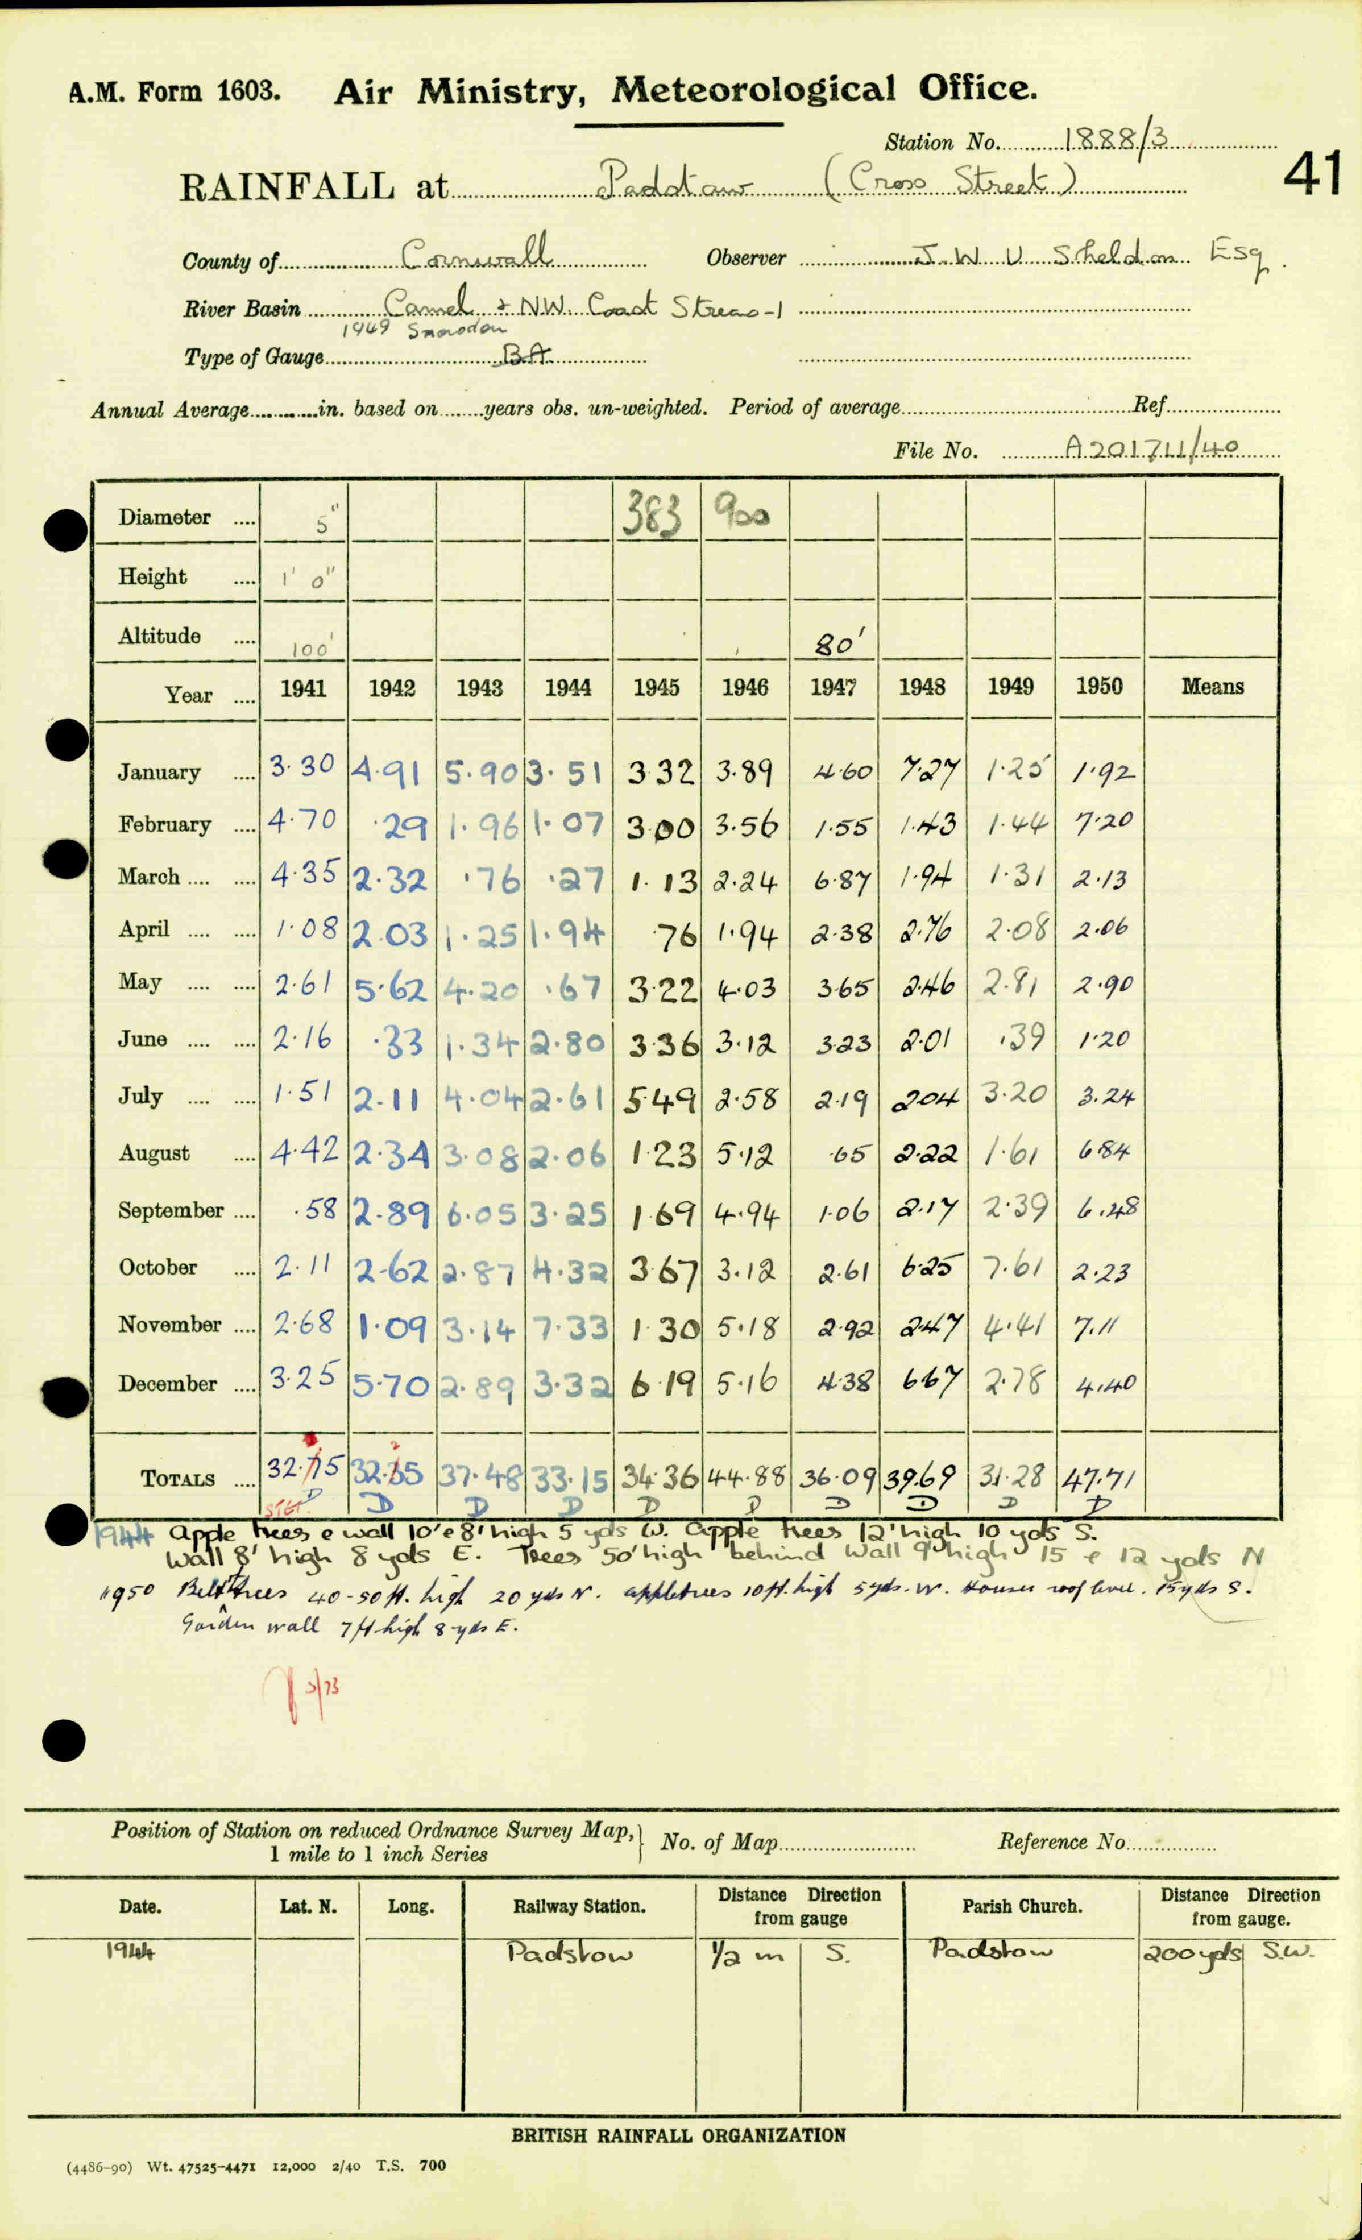 A.M. Form 1603. Air Ministry, Meteorological Office.
Station No. 1888/3
41
RAINFALL at Padstow (Cross Street)
County of Cornwall Observer J. W. U Sheldon Esq.
River Basin Camel & NW. Coast Streams-1
1949 Snowdon
Type of Gauge BA
Annual Average in. based on years obs. un-weighted. Period of average Ref.
File No. A201711/40
Diameter .... 5" 383 900
Height .... 1' 0"
Altitude .... 100' 80'
Year .... 1941 1942 1943 1944 1945 1946 1947 1948 1949 1950 Means
January .... 3.30 4.91 5.90 3.51 3.32 3.89 4.60 7.27 1.25 1.92
February .... 4.70 .29 1.96 1.07 3.00 3.56 1.55 1.43 1.44 7.20
March .... .... 4.35 2.32 .76 .27 1.13 2.24 6.87 1.94 1.31 2.13
April .... .... 1.08 2.03 1.25 1.94 .76 1.94 2.38 2.76 2.08 2.06
May .... .... 2.61 5.62 4.20 .67 3.22 4.03 3.65 2.46 2.81 2.90
June .... .... 2.16 .33 1.34 2.80 3.36 3.12 3.23 2.01 .39 1.20
July .... .... 1.51 2.11 4.04 2.61 5.49 2.58 2.19 2.04 3.20 3.24
August .... 4.42 2.34 3.08 2.06 1.23 5.12 .65 2.22 1.61 6.84
September .... .58 2.89 6.05 3.25 1.69 4.94 1.06 2.17 2.39 6.48
October .... 2.11 2.62 2.87 4.32 3.67 3.12 2.61 6.25 7.61 2.23
November .... 2.68 1.09 3.14 7.33 1.30 5.18 2.92 2.47 4.41 7.11
December .... 3.25 5.70 2.89 3.32 6.19 5.16 4.38 6.67 2.78 4.40
TOTALS .... 32.75 32.25 37.48 33.15 34.36 44.88 36.09 39.69 31.28 47.71
STET D D D D D D D D D D
1944 apple trees & wall 10' & 8' high 5 yds W. apple trees 12' high 10 yds S.
Wall 8' high 8 yds E. Trees 50' high behind Wall 9' high 15 & 12 yds N
1950 Belt trees 40-50 ft. high 20 yds N. appletrees 10ft. high 5 yds. W. Houses roof level. 15 yds S.
Garden wall 7 ft high 8 yds E.
3/73
Position of Station on reduced Ordnance Survey Map, No. of Map Reference No.
1 mile to 1 inch Series
Date. Lat. N. Long. Railway Station. Distance Direction from gauge Parish Church. Distance Direction from gauge.
1944 Padstow 1/2 m S. Padstow 200 yds S.W.
BRITISH RAINFALL ORGANIZATION
(4486-90) Wt. 47525-4471 12,000 2/40 T.S. 700